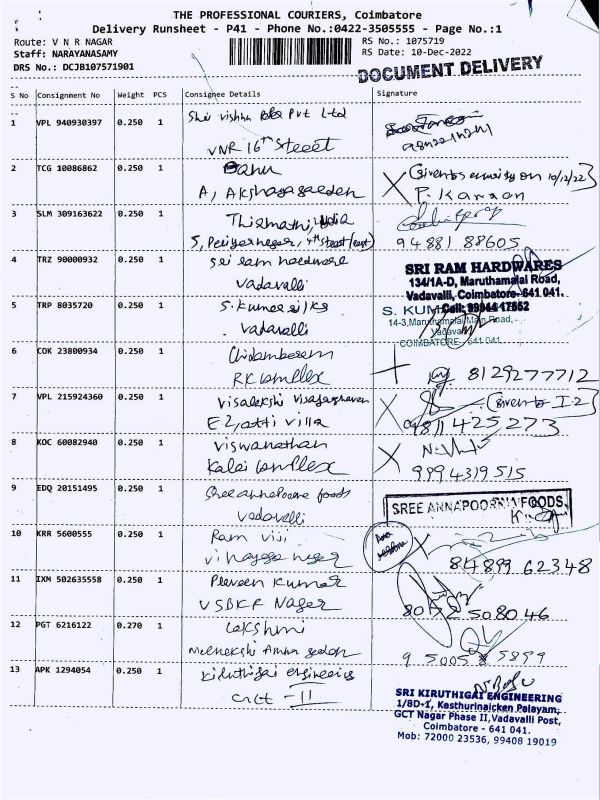 THE PROFESSIONAL COURIERS, Coimbatore
Delivery Runsheet - P41 - Phone No.:0422-3505555 - Page No.:1
Route: V N R NAGAR
Staff: NARAYANASAMY
DRS No.: DCJB107571901
RS No.: 1075719
RS Date: 10-Dec-2022
DOCUMENT DELIVERY
S No Consignment No Weight PCS Consignee Details Signature
1 VPL 940930397 0.250 1 Pvt Ltd
VNR 16th Street
2 TCG 10086862 0.250 1 Banu (Given to security on 10/12/22)
A, Akshaya garden
3 SLM 309163622 0.250 1 Thirumathi,
5, Periyar nagar, 4th street (east) 94881 88605
4 TRZ 90000932 0.250 1 Sri ram hardware
vadavalli
SRI RAM HARDWARES
134/1A-D, Maruthamalai Road,
Vadavalli, Coimbatore-641 041.
Cell: 99944 17662
5 TRP 8035720 0.250 1 S. Kumar silks
vadavalli
14-3, Maruthamalai Main Road,
Vadavalli
COIMBATORE - 641 041.
6 COK 23800934 0.250 1 Chidambaram
RK Complex 8129277712
7 VPL 215924360 0.250 1 Visalakshi (Given to I-2)
villa 425273
8 KOC 60082940 0.250 1 viswanathan
Kalai Complex 9994319515
9 EDQ 20151495 0.250 1 Sree annapoorna foods
vadavalli
SREE ANNAPOORNA FOODS,
10 KRR 5600555 0.250 1 Ram
vinayaga nagar 84899 62348
11 IXM 502635558 0.250 1 Praveen Kumar
Nagar 508046
12 PGT 6216122 0.270 1 Lakshmi
Meenakshi Amma 5899
13 APK 1294054 0.250 1 Kiruthigai
II
SRI KIRUTHIGAI ENGINEERING
1/8D-1, Kasthurinaicken Palayam,
GCT Nagar Phase II, Vadavalli Post,
Coimbatore - 641 041.
Mob: 72000 23536, 99408 19019